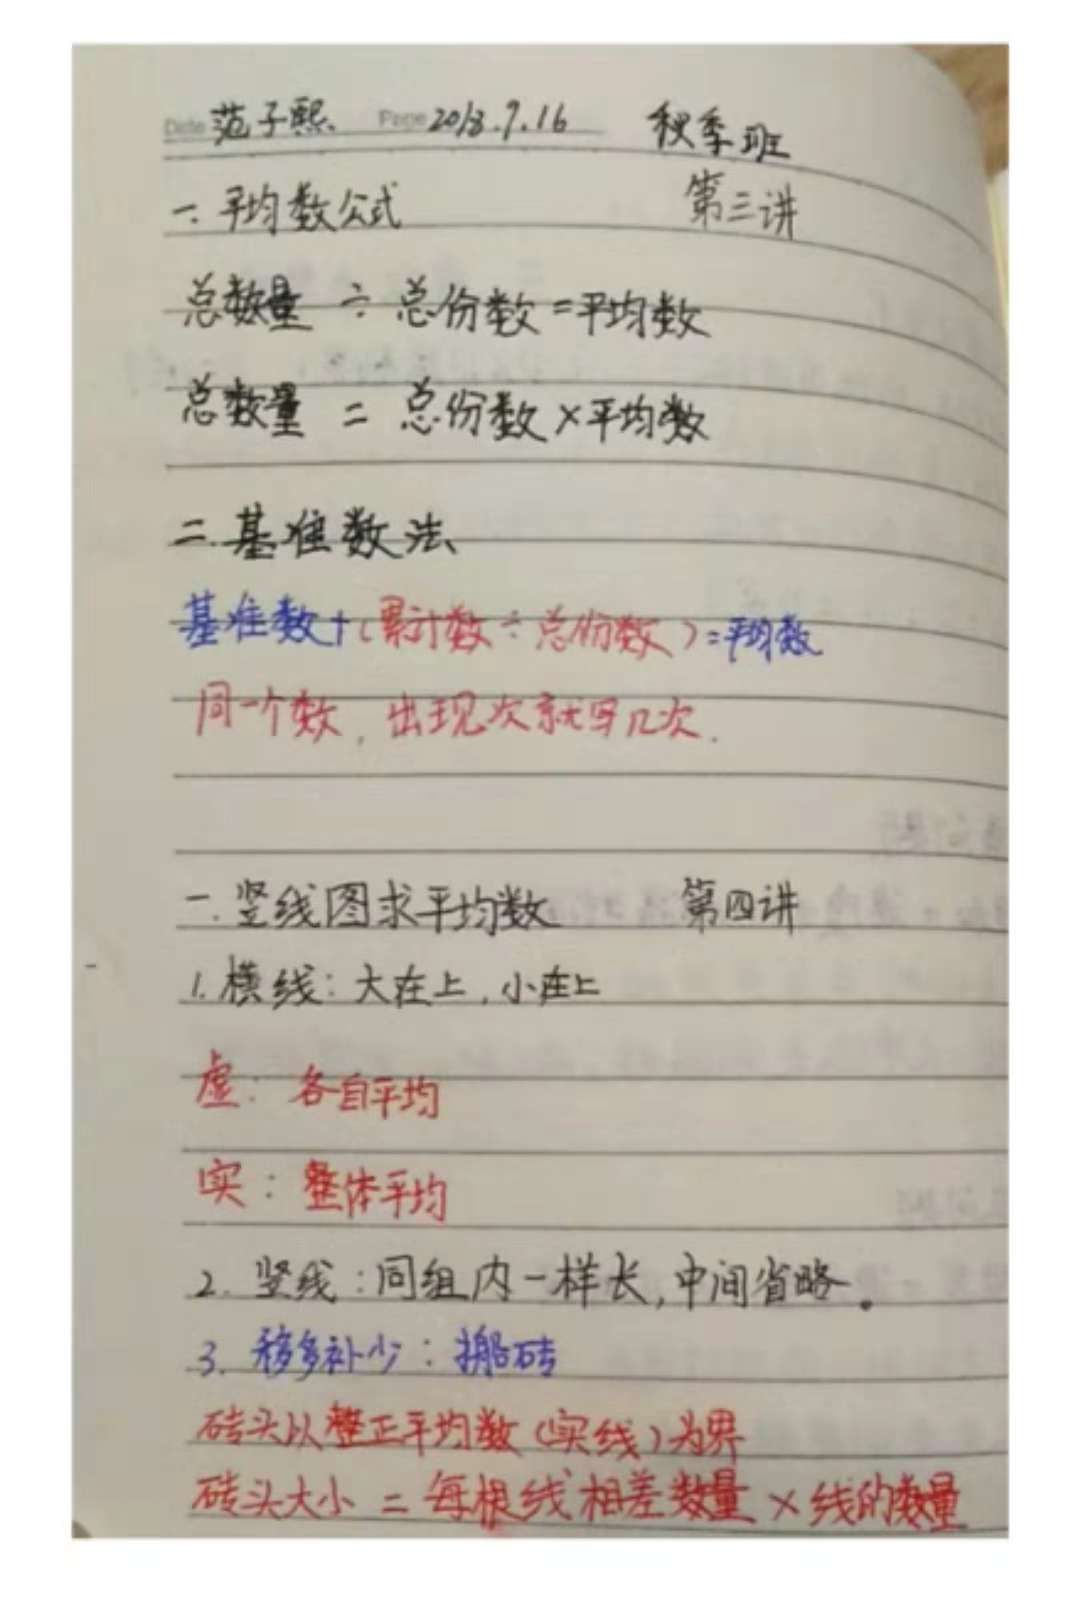 Date 范子熙 Page 2018.9.16 秋季班
一.平均数公式 第三讲
总数量 ÷ 总份数=平均数
总数量 = 总份数×平均数
二.基准数法
基准数+(累计数÷总份数)=平均数
同一个数，出现次就写几次.
一.竖线图求平均数 第四讲
1.横线：大在上，小在上
虚：各自平均
实：整体平均
2.竖线：同组内一样长,中间省略。
3.移多补少：搬砖
砖头以整正平均数(实线)为界
砖头大小 = 每根线相差数量 × 线的数量